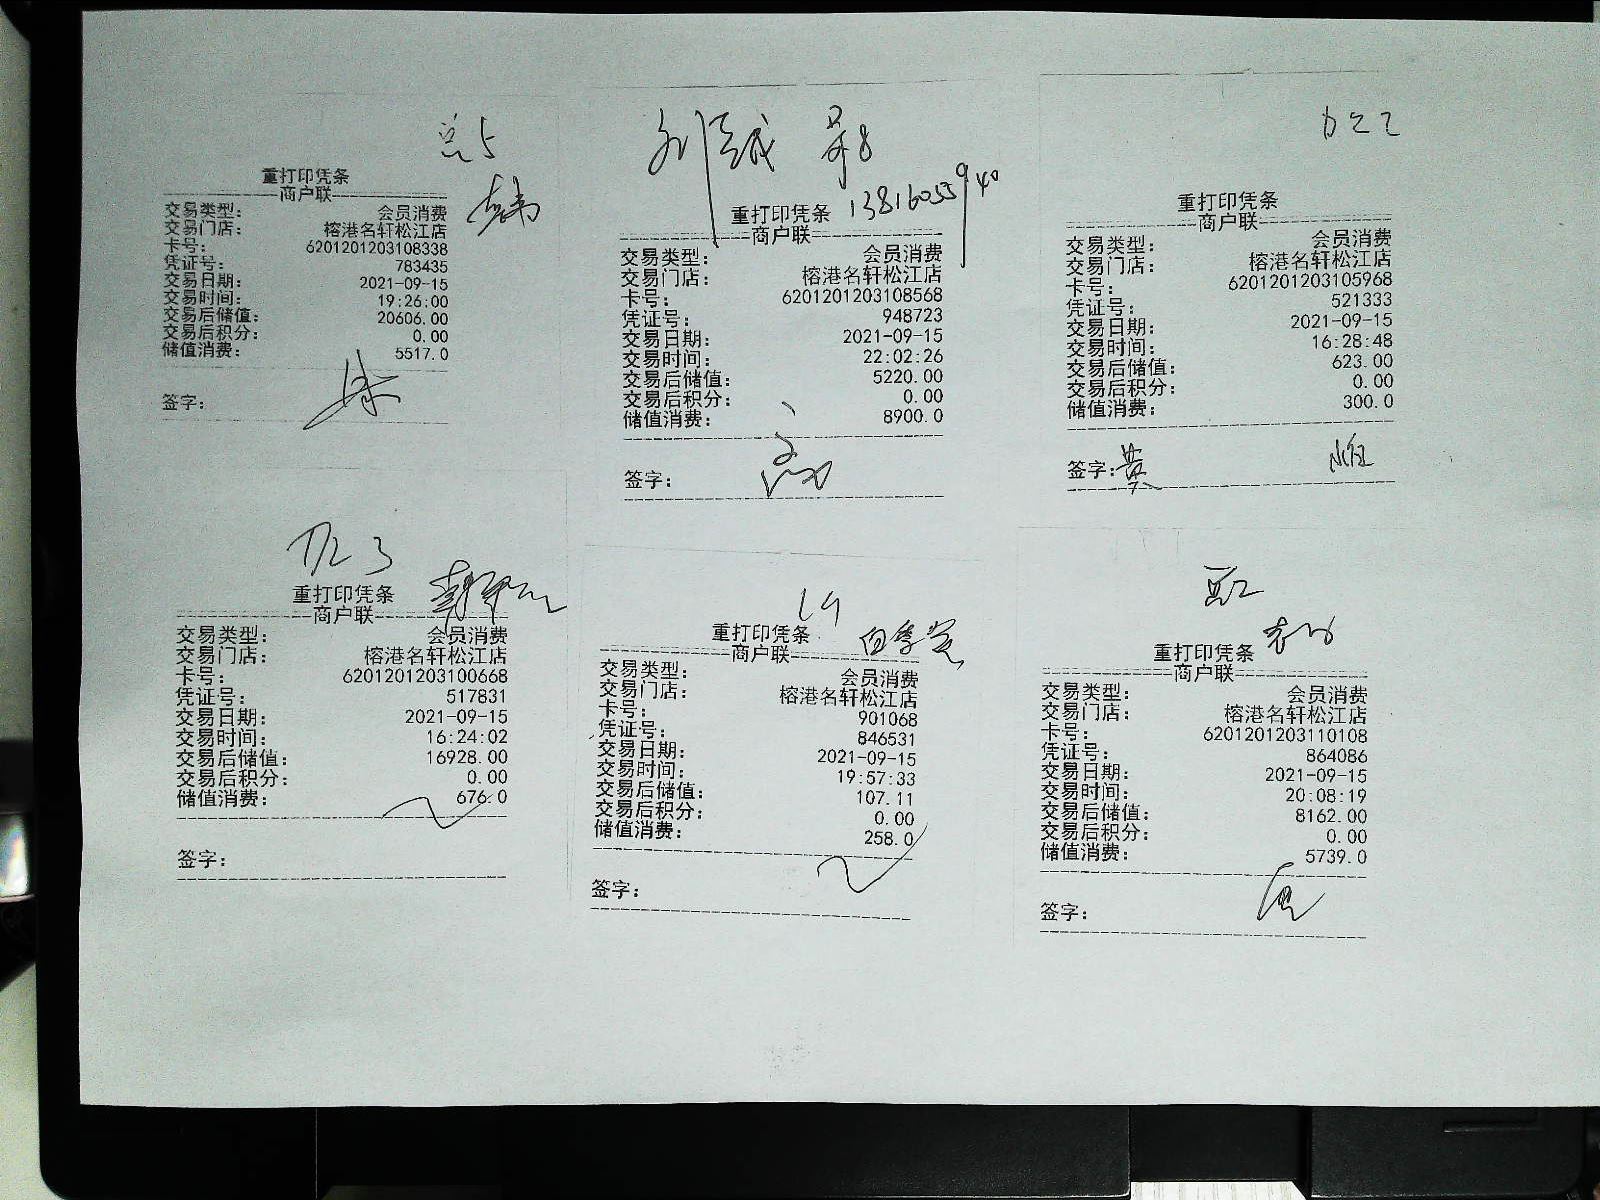 总5
重打印凭条
商户联
交易类型: 会员消费
交易门店: 榕港名轩松江店
卡号: 6201201203108338
凭证号: 783435
交易日期: 2021-09-15
交易时间: 19:26:00
交易后储值: 20606.00
交易后积分: 0.00
储值消费: 5517.0
签字:
重打印凭条
商户联
交易类型: 会员消费
交易门店: 榕港名轩松江店
卡号: 6201201203108568
凭证号: 948723
交易日期: 2021-09-15
交易时间: 22:02:26
交易后储值: 5220.00
交易后积分: 0.00
储值消费: 8900.0
签字:
重打印凭条
商户联
交易类型: 会员消费
交易门店: 榕港名轩松江店
卡号: 6201201203105968
凭证号: 521333
交易日期: 2021-09-15
交易时间: 16:28:48
交易后储值: 623.00
交易后积分: 0.00
储值消费: 300.0
签字: 黄
重打印凭条
商户联
交易类型: 会员消费
交易门店: 榕港名轩松江店
卡号: 6201201203100668
凭证号: 517831
交易日期: 2021-09-15
交易时间: 16:24:02
交易后储值: 16928.00
交易后积分: 0.00
储值消费: 676.0
签字:
重打印凭条
商户联
交易类型: 会员消费
交易门店: 榕港名轩松江店
卡号: 901068
凭证号: 846531
交易日期: 2021-09-15
交易时间: 19:57:33
交易后储值: 107.11
交易后积分: 0.00
储值消费: 258.0
签字:
重打印凭条
商户联
交易类型: 会员消费
交易门店: 榕港名轩松江店
卡号: 6201201203110108
凭证号: 864086
交易日期: 2021-09-15
交易时间: 20:08:19
交易后储值: 8162.00
交易后积分: 0.00
储值消费: 5739.0
签字: